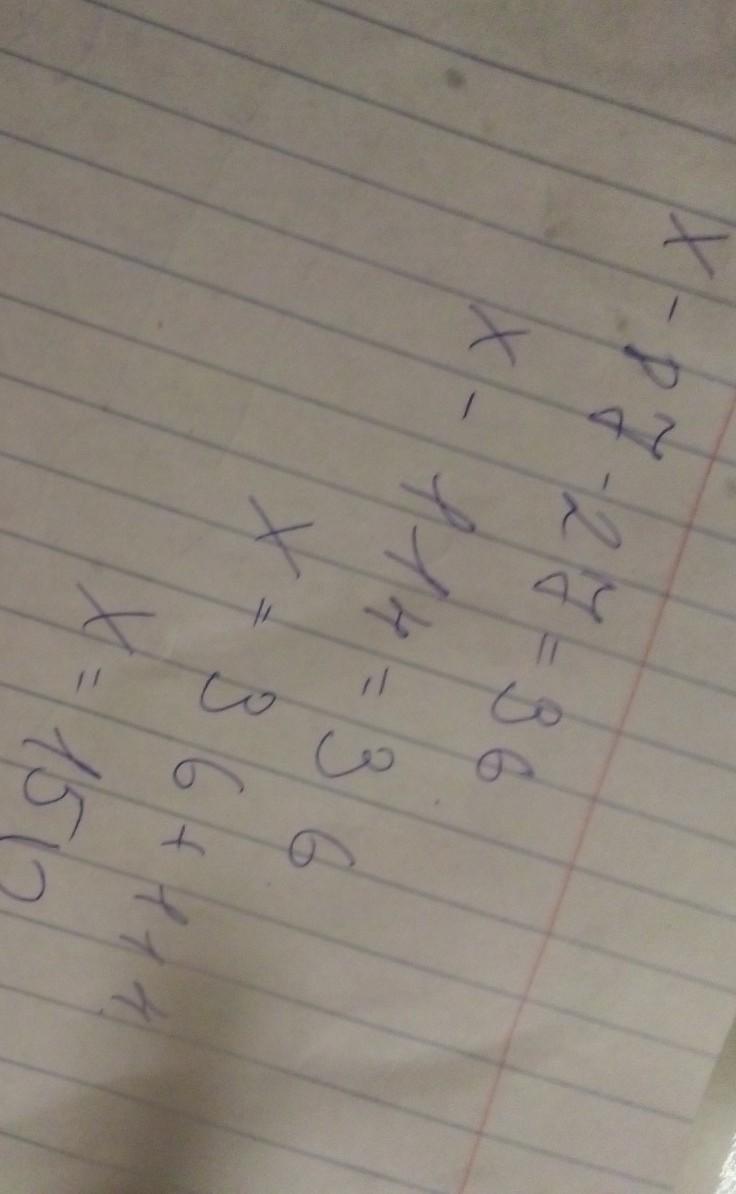 x - 87 - 27 = 36
x - 114 = 36
x = 36 + 114
x = 150